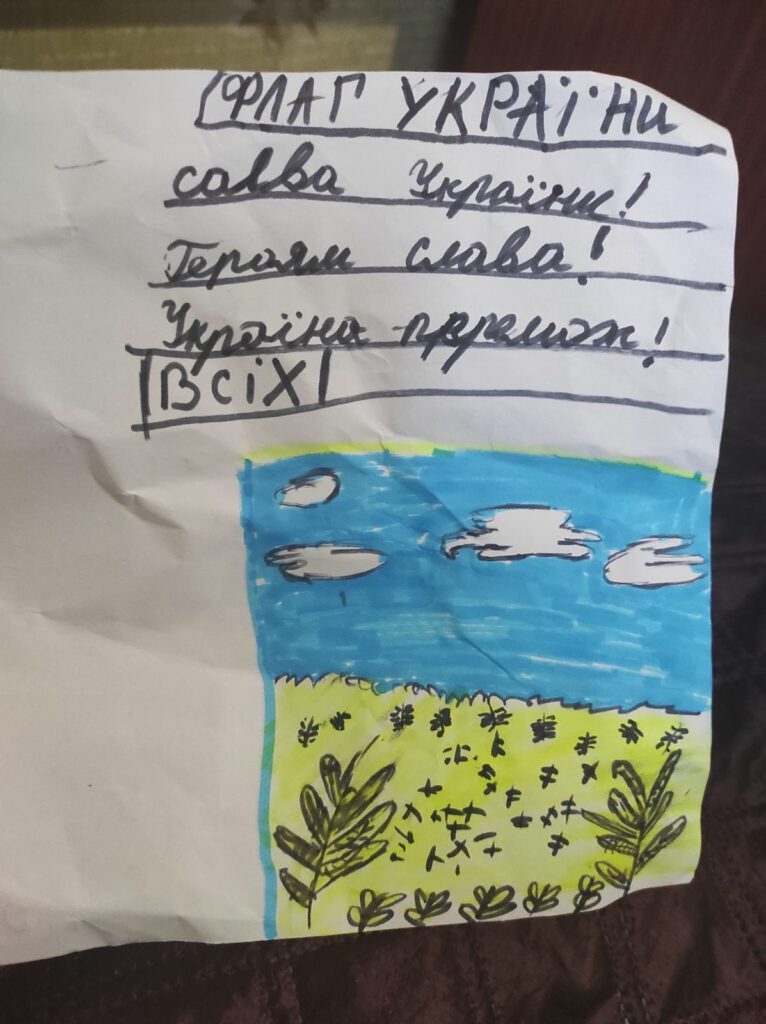 ФЛАГ УКРАЇНИ
України!
Героям слава!
Україна перемож!
ВСІХ